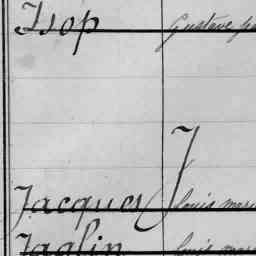 Isop Gustave
J
Jacques Louis Marie
Jaglin Louis